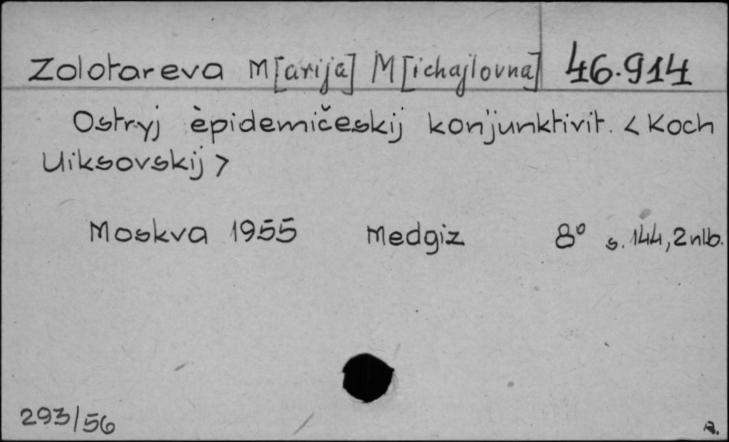 Zolotareva M[arija] M[ichajlovna] 46.914
Ostryj èpidemičeskij kon'junktivit. <Koch
Uiksovskij>
Moskva 1955 Medgiz 8° s. 144, 2 nlb.
293/56
A.